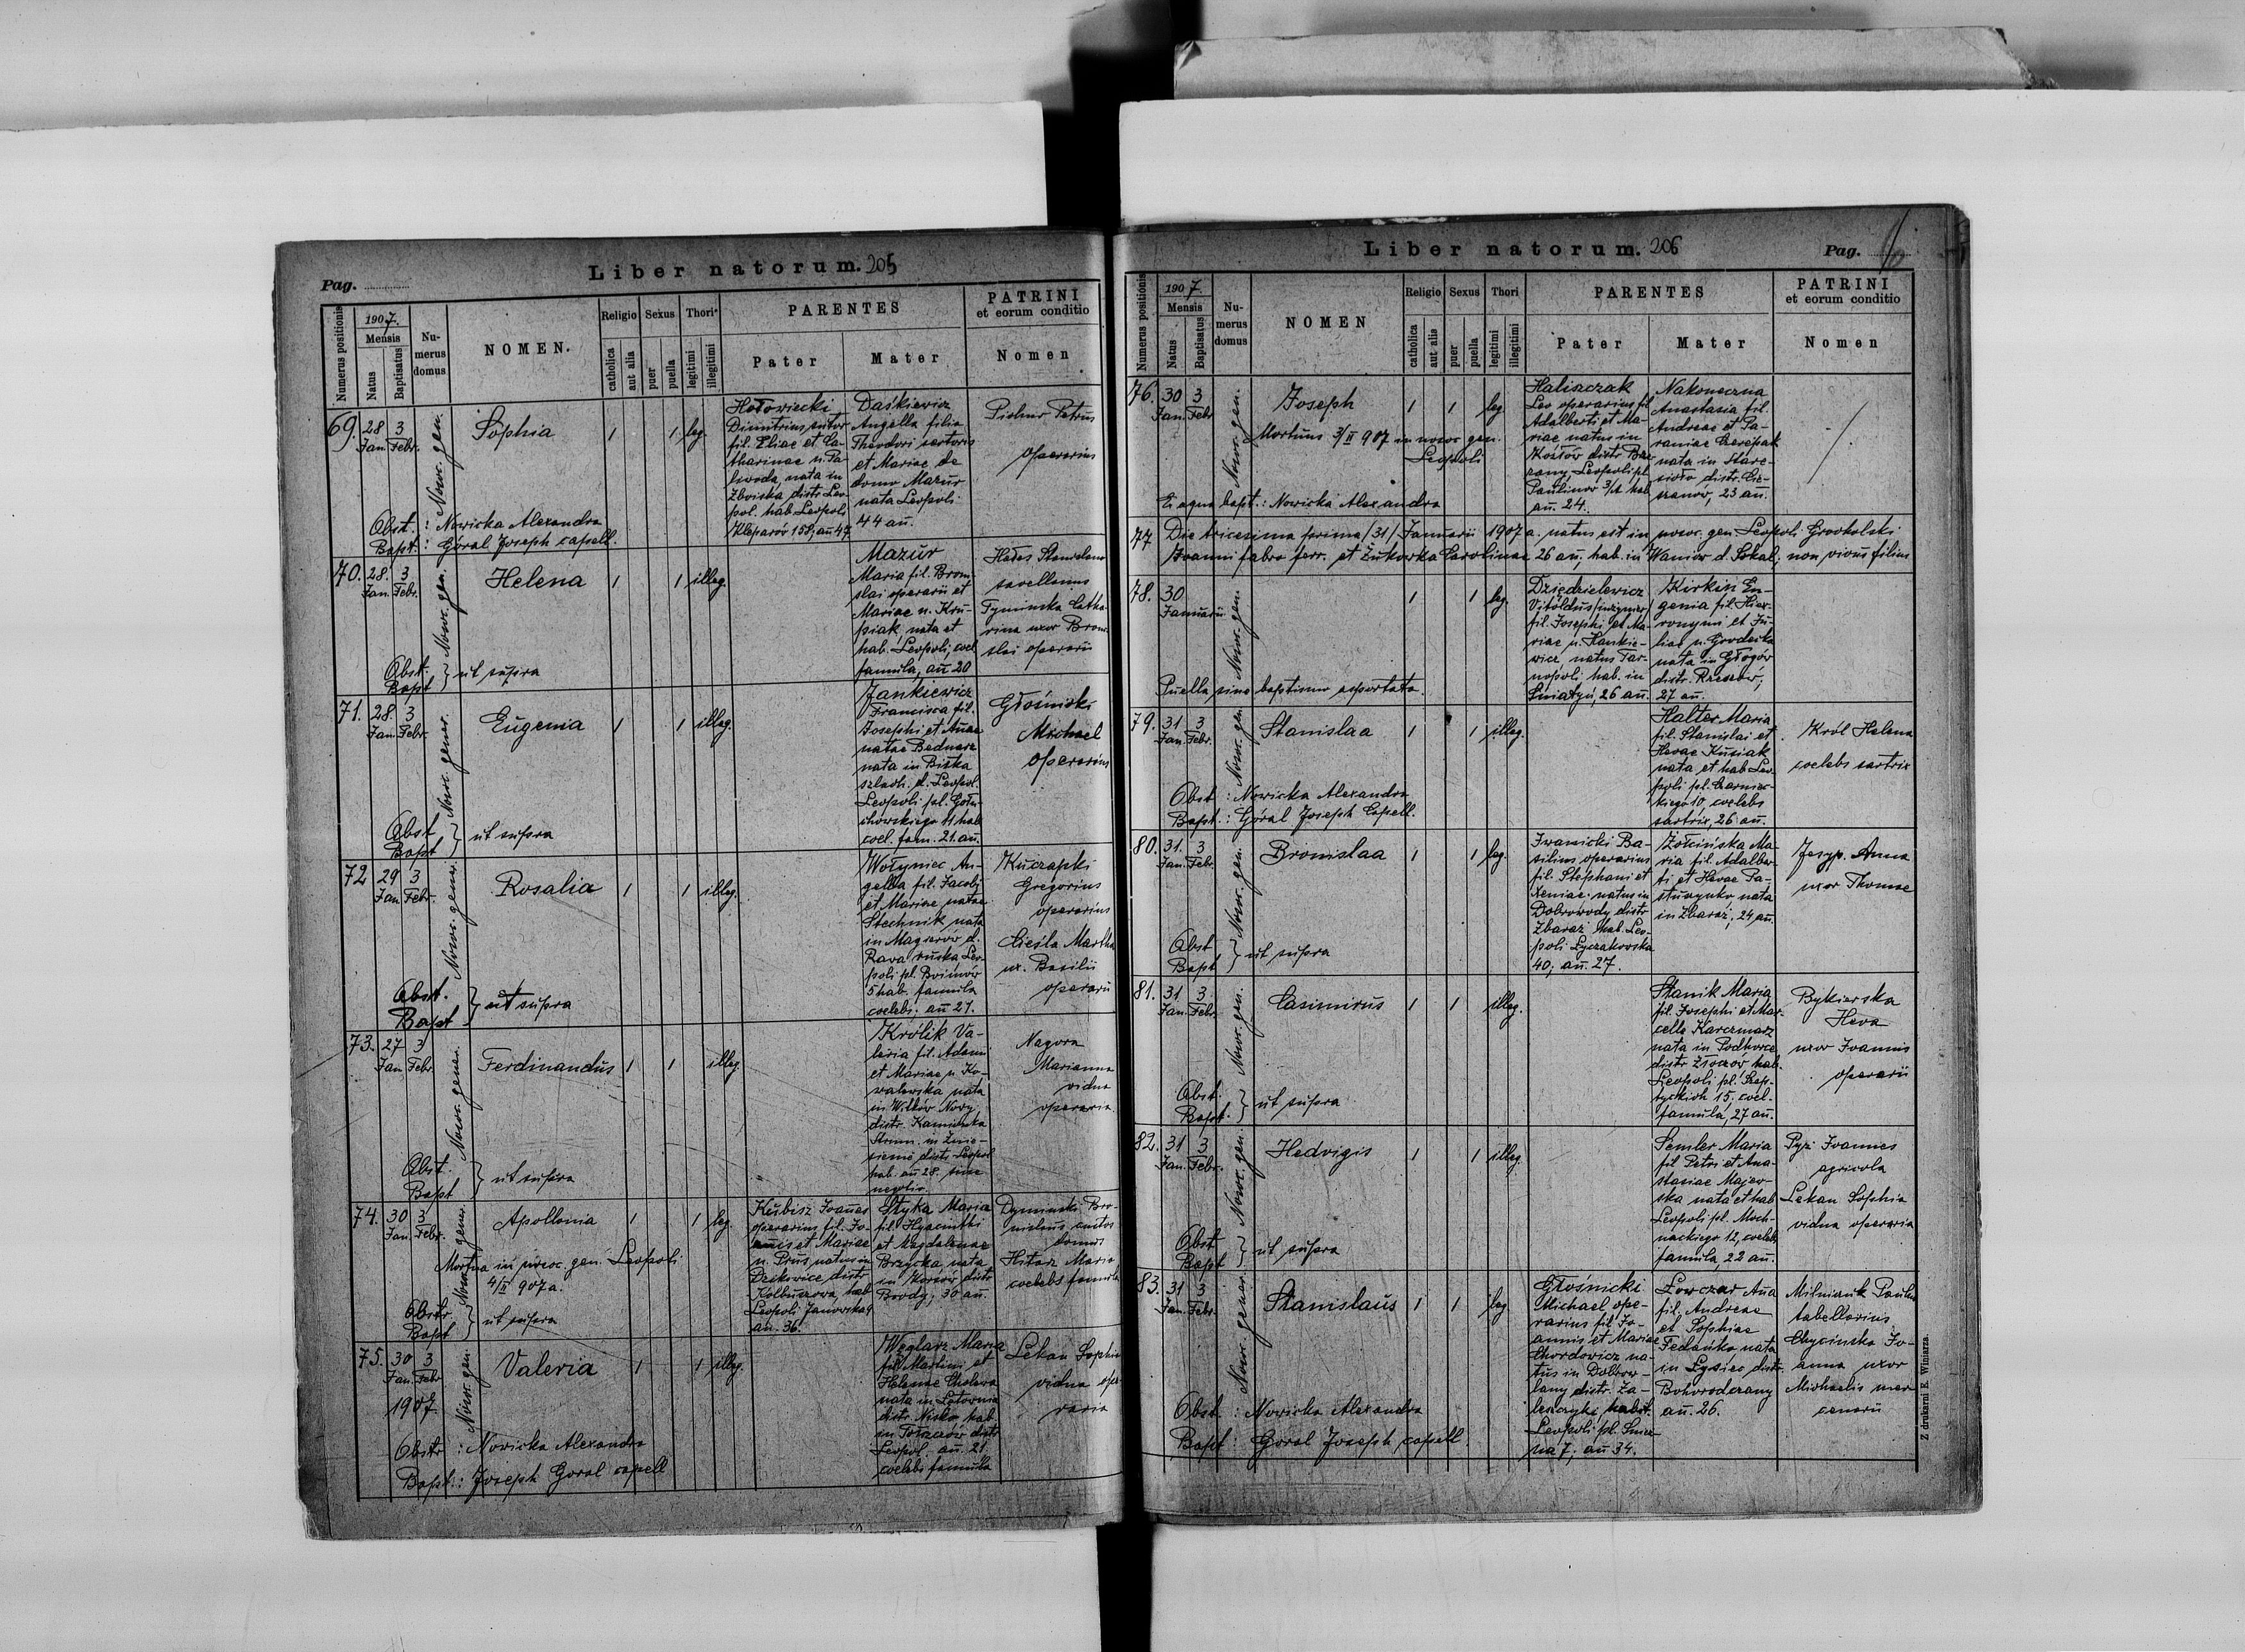 Liber natorum. 205
Pag.
Numerus positionis
1907.
Mensis
Natus
Baptisatus
Numerus domus
NOMEN.
Religio
catholica
aut alia
Sexus
puer
puella
Thori
legitimi
illegitimi
PARENTES
Pater
Mater
PATRINI
et eorum conditio
Nomen
69. 28 Jan. 3 Febr.
Nosoc. gen.
Sophia
1 1 leg.
Hołowiecki
Dimitrius sutor
fil. Eliae et Ca-
tharinae n. Pa-
lwoda, nata in
Zboiska distr. Leo-
pol. hab. Leopoli
Kleparów 158, an 47
Daśkiewicz
Angella filia
Theodori sartoris
et Mariae de
domo Mazur
nata Leopoli
44 an.
Piolun Petrus
operarius
Obst. : Nowicka Alexandra
Bapt. : Góral Joseph capell.
70. 28. Jan. 3 Febr.
Nosoc. gen.
Helena
1 1 illeg.
Mazur
Maria fil. Broni-
slai operarii et
Mariae n. Kru-
piak nata et
hab. Leopoli, coel.
famula, an 20
Hałas Stanislaus
Tyminska Catha-
rina uxor Broni-
slai operarii
Obst.
Bapt } ut supra
71. 28. Jan. 3 Febr.
Nosoc. gener.
Eugenia
1 1 illeg.
Jankiewicz
Francisca fil.
Josephi et Annae
natae Bednarz
nata in Biłka
szlach. d. Leopol.
Leopoli pl. Gołu-
chowskiego 11 hab.
coel. fam. 21. an.
Głośnicki
Michael
operarius
Obst
Bapt } ut supra
72 29 Jan 3 Febr.
Nosoc. gener.
Rosalia
1 1 illeg.
Wołyniec An-
gella fil. Jacobi
et Mariae natae
Stechnik nata
in Magierów d.
Rava ruska Leo-
poli pl. Boimów
5 hab. famula
coelebs, an 21.
Kuczapki
Gregorius
operarius
Cieśla Martha
ux. Basilii
operarii
Obst.
Bapt } ut supra
73. 27 Jan 3 Febr.
Nosoc. gener.
Ferdinandus
1 1 illeg.
Królik Va-
leria fil. Adami
et Mariae n Ko-
walewska nata
in Witków Nowy
distr. Kamionka
Strum. in Znie-
sienie distr. Leopol
hab. an 28. sine
negotio.
Nagora
Marianna
vidua
operaria
Obst.
Bapt } ut supra
74. 30 Jan. 3 Febr.
Nosoc. gener.
Apollonia
1 1 leg.
Mortua in nosoc. gen. Leopoli
4/II 907 a.
Kubisz Joannes
operarius fil. Jo-
annis et Mariae
n. Prus natus in
Dzikowice distr.
Kolbuszowa, hab.
Leopoli Janowska 4
an. 36.
Styka Maria
fil. Hyacinthi
et Magdalenae
Brzycka nata
in Korsów distr.
Brody, 30 an.
Dyminski Bro-
nislaus custos
domus
Maria
coelebs famula
Obstr.
Bapt } ut supra
75. 30 Jan. 3 Febr
1907.
Nosoc. gen.
Valeria
1 1 illeg.
Węglarz Maria
fil Martini et
Helenae Cholewa
nata in Łetownia
distr. Nisko, hab.
in Tołszczów distr.
Leopol. an. 21
coelebs famula
Lekan Sophia
vidua ope-
raria
Obstr : Nowicka Alexandra
Bapt. : Joseph Goral capell
Liber natorum. 206
Pag.
Numerus positionis
1907.
Mensis
Natus
Baptisatus
Numerus domus
NOMEN
Religio
catholica
aut alia
Sexus
puer
puella
Thori
legitimi
illegitimi
PARENTES
Pater
Mater
PATRINI
et eorum conditio
Nomen
76. 30 Jan. 3 Febr
Nosoc. gen.
Joseph
1 1 leg
Mortuus 3/II 907 in nosoc. gen.
Leopoli
Haliaczak
Leo operarius fil
Adalberti et Ma-
riae natus in
Kozłów distr. Brze-
zany, Leopoli pl.
Paulinów 3/A hab
an. 24.
Nakoneczna
Anastasia fil.
Andreae et Pa-
raniae Czerepak
nata in Stare-
sioło distr. Cie-
szanów, 23 an.
Ex aqua bapt.: Nowicka Alexandra
77 Die tricesima prima /31/ Januarii 1907 a. natus est in nosoc. gen. Leopoli Grocholski
Joanni fabro ferr. et Żukowska Carolinae 26 an, hab. in Waniów d. Sokal; non vivus filius
78. 30
Januarii
Nosoc. gen.
1 1 leg.
Dziędzielewicz
Vitoldus /inżynier/
fil. Josephi et Ma-
riae n. Hankie-
wicz natus Tar-
nopoli hab. in
Śniatyń, 26 an.
Kirkin Eu-
genia fil. Hier-
ronymi et Ju-
liae n. Grodecka
nata in Głogów
distr. Rzeszów,
27 an.
Puella sine baptismo asportata.
79. 31 Jan. 3 Febr.
Nosoc. gen
Stanislaa
1 1 illeg.
Halter Maria
fil. Stanislai et
Hevae Kusiak
nata et hab Leo-
poli pl. Czarniec-
kiego 10, coelebs
sartrix, 26 an.
Król Helena
coelebs sartrix
Obst : Nowicka Alexandra
Bapt. : Góral Joseph Capell.
80. 31. Jan. 3 Febr.
Nosoc. gen.
Bronislaa
1 1 leg.
Iwanicki Ba-
silius operarius
fil. Stephani et
Xeniae natus in
Dobrowody distr
Zbaraz hab. Leo-
poli Łyczakowska
40; an. 27.
Żołcińska Ma-
ria fil. Adalber-
ti et Hevae Pa-
stuszynko nata
in Zbaraż, 24 an.
Jesyp. Anna
uxor Thomae
Obst
Bapt } ut supra
81. 31 Jan. 3 Febr.
Nosoc. gen.
Casimirus
1 1 illeg.
Stanik Maria
fil. Josephi et Mar-
cella Karczmarz
nata in Podhorce
distr. Złoczów hab.
Leopoli pl. Szep-
tyckich 15, coel.
famula, 27 an.
Bykierska
Heva
uxor Joannis
operarii
Obst.
Bapt. } ut supra
82. 31 Jan. 3 Febr.
Nosoc. gen.
Hedvigis
1 1 illeg.
Semler Maria
fil Petri et Ana-
stasiae Majew-
ska nata et hab
Leopoli pl. Moch-
nackiego 12, coelebs
famula, 22 an.
Pyz Joannes
agricola
Lekan Sophia
vidua operaria
Obst
Bapt } ut supra
83. 31 Jan. 3 Febr.
Nosoc. gener.
Stanislaus
1 1 leg
Głośnicki
Michael ope-
rarius fil Jo-
annis et Mariae
Chordowicz na-
tus in Dobrow-
lany distr. Za-
leszczyki habit.
Leopoli pl. Smer-
na 7; an 34.
Łowczar Anna
fil. Andreae
et Sophiae
Fedańko nata
in Łysiec distr.
Bohorodczany
an. 26.
Milniczuk Paulus
tabellarius
Chycinska Jo-
anna uxor
Michaelis mer-
cenarii
Obst : Nowicka Alexandra
Bapt : Goral Joseph capell.
Z drukarni E. Winiarza.